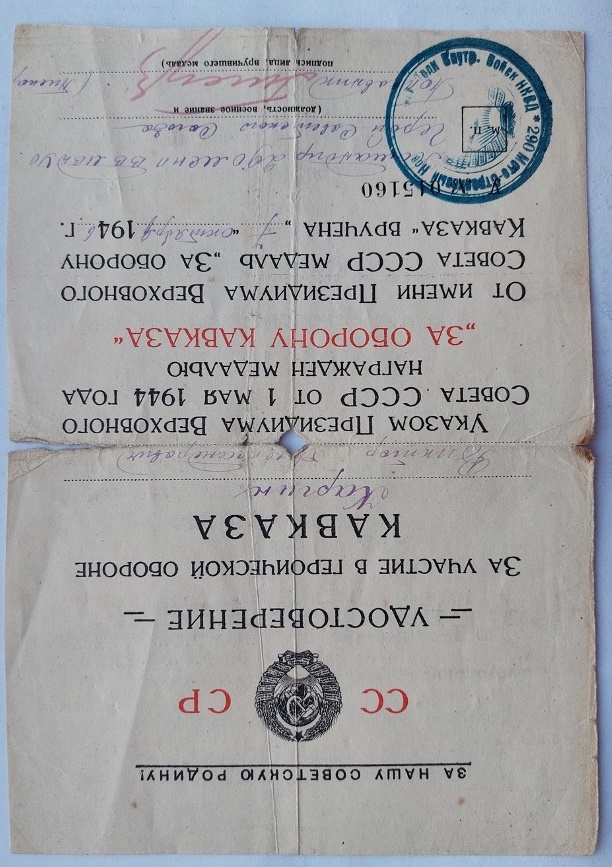 ЗА НАШУ СОВЕТСКУЮ РОДИНУ!
СС СР
— УДОСТОВЕРЕНИЕ —
ЗА УЧАСТИЕ В ГЕРОИЧЕСКОЙ ОБОРОНЕ
КАВКАЗА
Каргин
Виктор Александрович
УКАЗОМ ПРЕЗИДИУМА ВЕРХОВНОГО
СОВЕТА СССР ОТ 1 МАЯ 1944 ГОДА
НАГРАЖДЕН МЕДАЛЬЮ
„ЗА ОБОРОНУ КАВКАЗА“
ОТ ИМЕНИ ПРЕЗИДИУМА ВЕРХОВНОГО
СОВЕТА СССР МЕДАЛЬ „ЗА ОБОРОНУ
КАВКАЗА“ ВРУЧЕНА „7“ октября 1946 Г.
015160
Герой Советского Союза
(ДОЛЖНОСТЬ, ВОЕННОЕ ЗВАНИЕ И
Полковник
ПОДПИСЬ ЛИЦА, ВРУЧИВШЕГО МЕДАЛЬ)
М. П.
Внутр. Войск НКВД * 290 Мото-Стрелковый